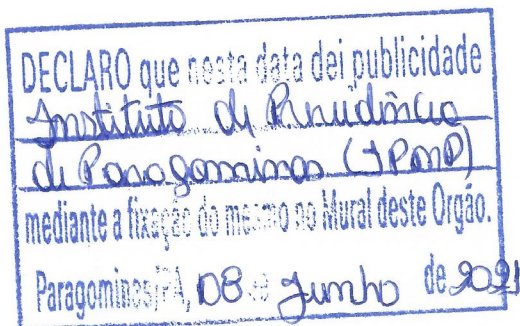 DECLARO que nesta data dei publicidade
Instituto de Previdência
de Paragominas (IPMP)
mediante a fixação do mesmo no Mural deste Orgão.
Paragominas/PA, 08 de Junho de 2021